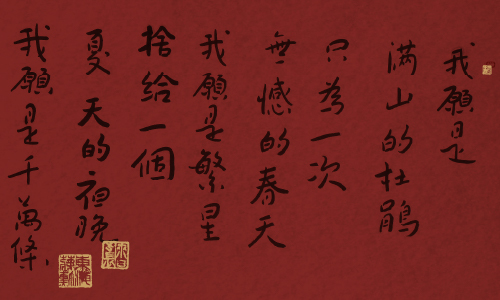 我願是
满山的杜鵑
只為一次
無憾的春天
我願是繁星
捨給一個
夏天的夜晚
我願是千萬條